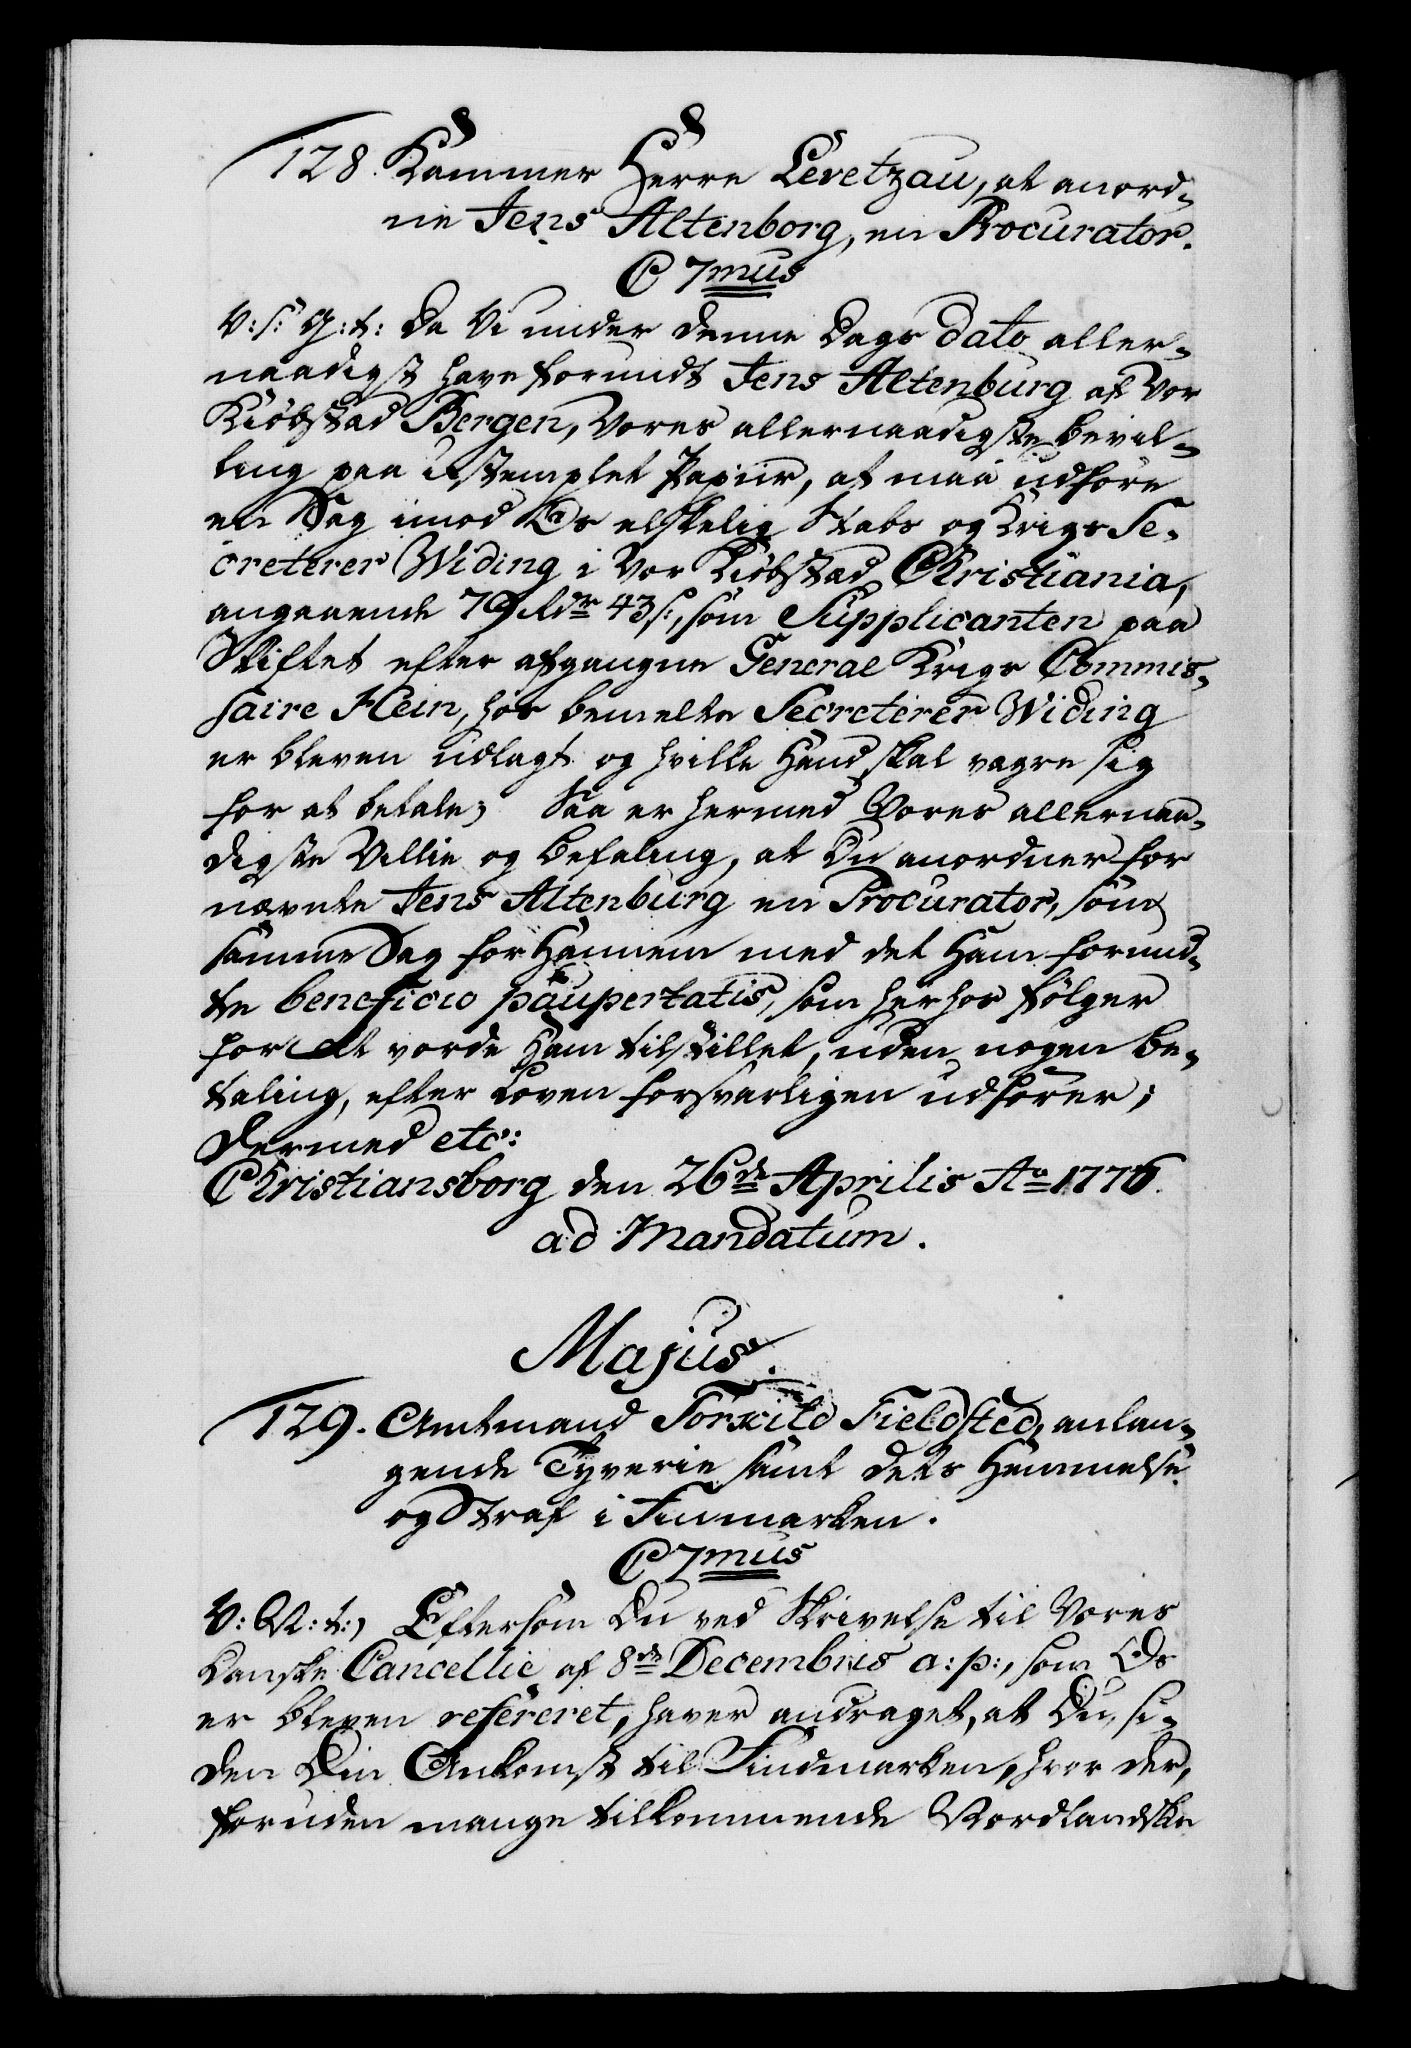 128. Kammer Herre Levetzau, at anord-
ne Jens Altenborg, en Procurator.
C 7mus
V: S: G: t: Da Vi under denne Dags dato aller-
naadigst have forundt Jens Altenburg af Vor
Kiöbstad Bergen, Vores allernaadigste bevil-
ling paa ustemplet Papiir, at maa udföre
en Sag imod Os elskelig Stabs og Krigs Se-
creterer Widing i Vor Kiöbstad Christiania,
angaaende 79 Rdr 43 s:, som Supplicanten paa
Skiftet efter afgangne General Krigs Commis-
saire Hein, hos bemelte Secreterer Widing
er bleven udlagt og hvilke Hand skal vægre sig
for at betale; Saa er hermed Vores allernaa-
digste Villie og befaling, at Du anordner for
nævnte Jens Altenburg en Procurator, som
samme Sag for Hannem med det Ham forund-
te beneficio paupertatis, som herhos fölger
for at vorde Ham tilstillet, uden nogen be-
taling, efter Loven forsvarligen udförer;
Dermed etc:
Christiansborg den 26de Aprilis Ao 1776.
ad Mandatum.
Majus.
129. Amtmand Torkild Fieldsted, anlan-
gende Tyverie samt dets Hemmelse
og Straf i Finmarken.
C 7mus
V: G: t:, Eftersom Du ved Skrivelse til Vores
Danske Cancellie af 8de Decembris a: p:, som Os
er bleven refereret, haver andraget, at Du, si-
den Din Ankomst til Findmarken, hvor der,
foruden mange tilkommende Nordlandske